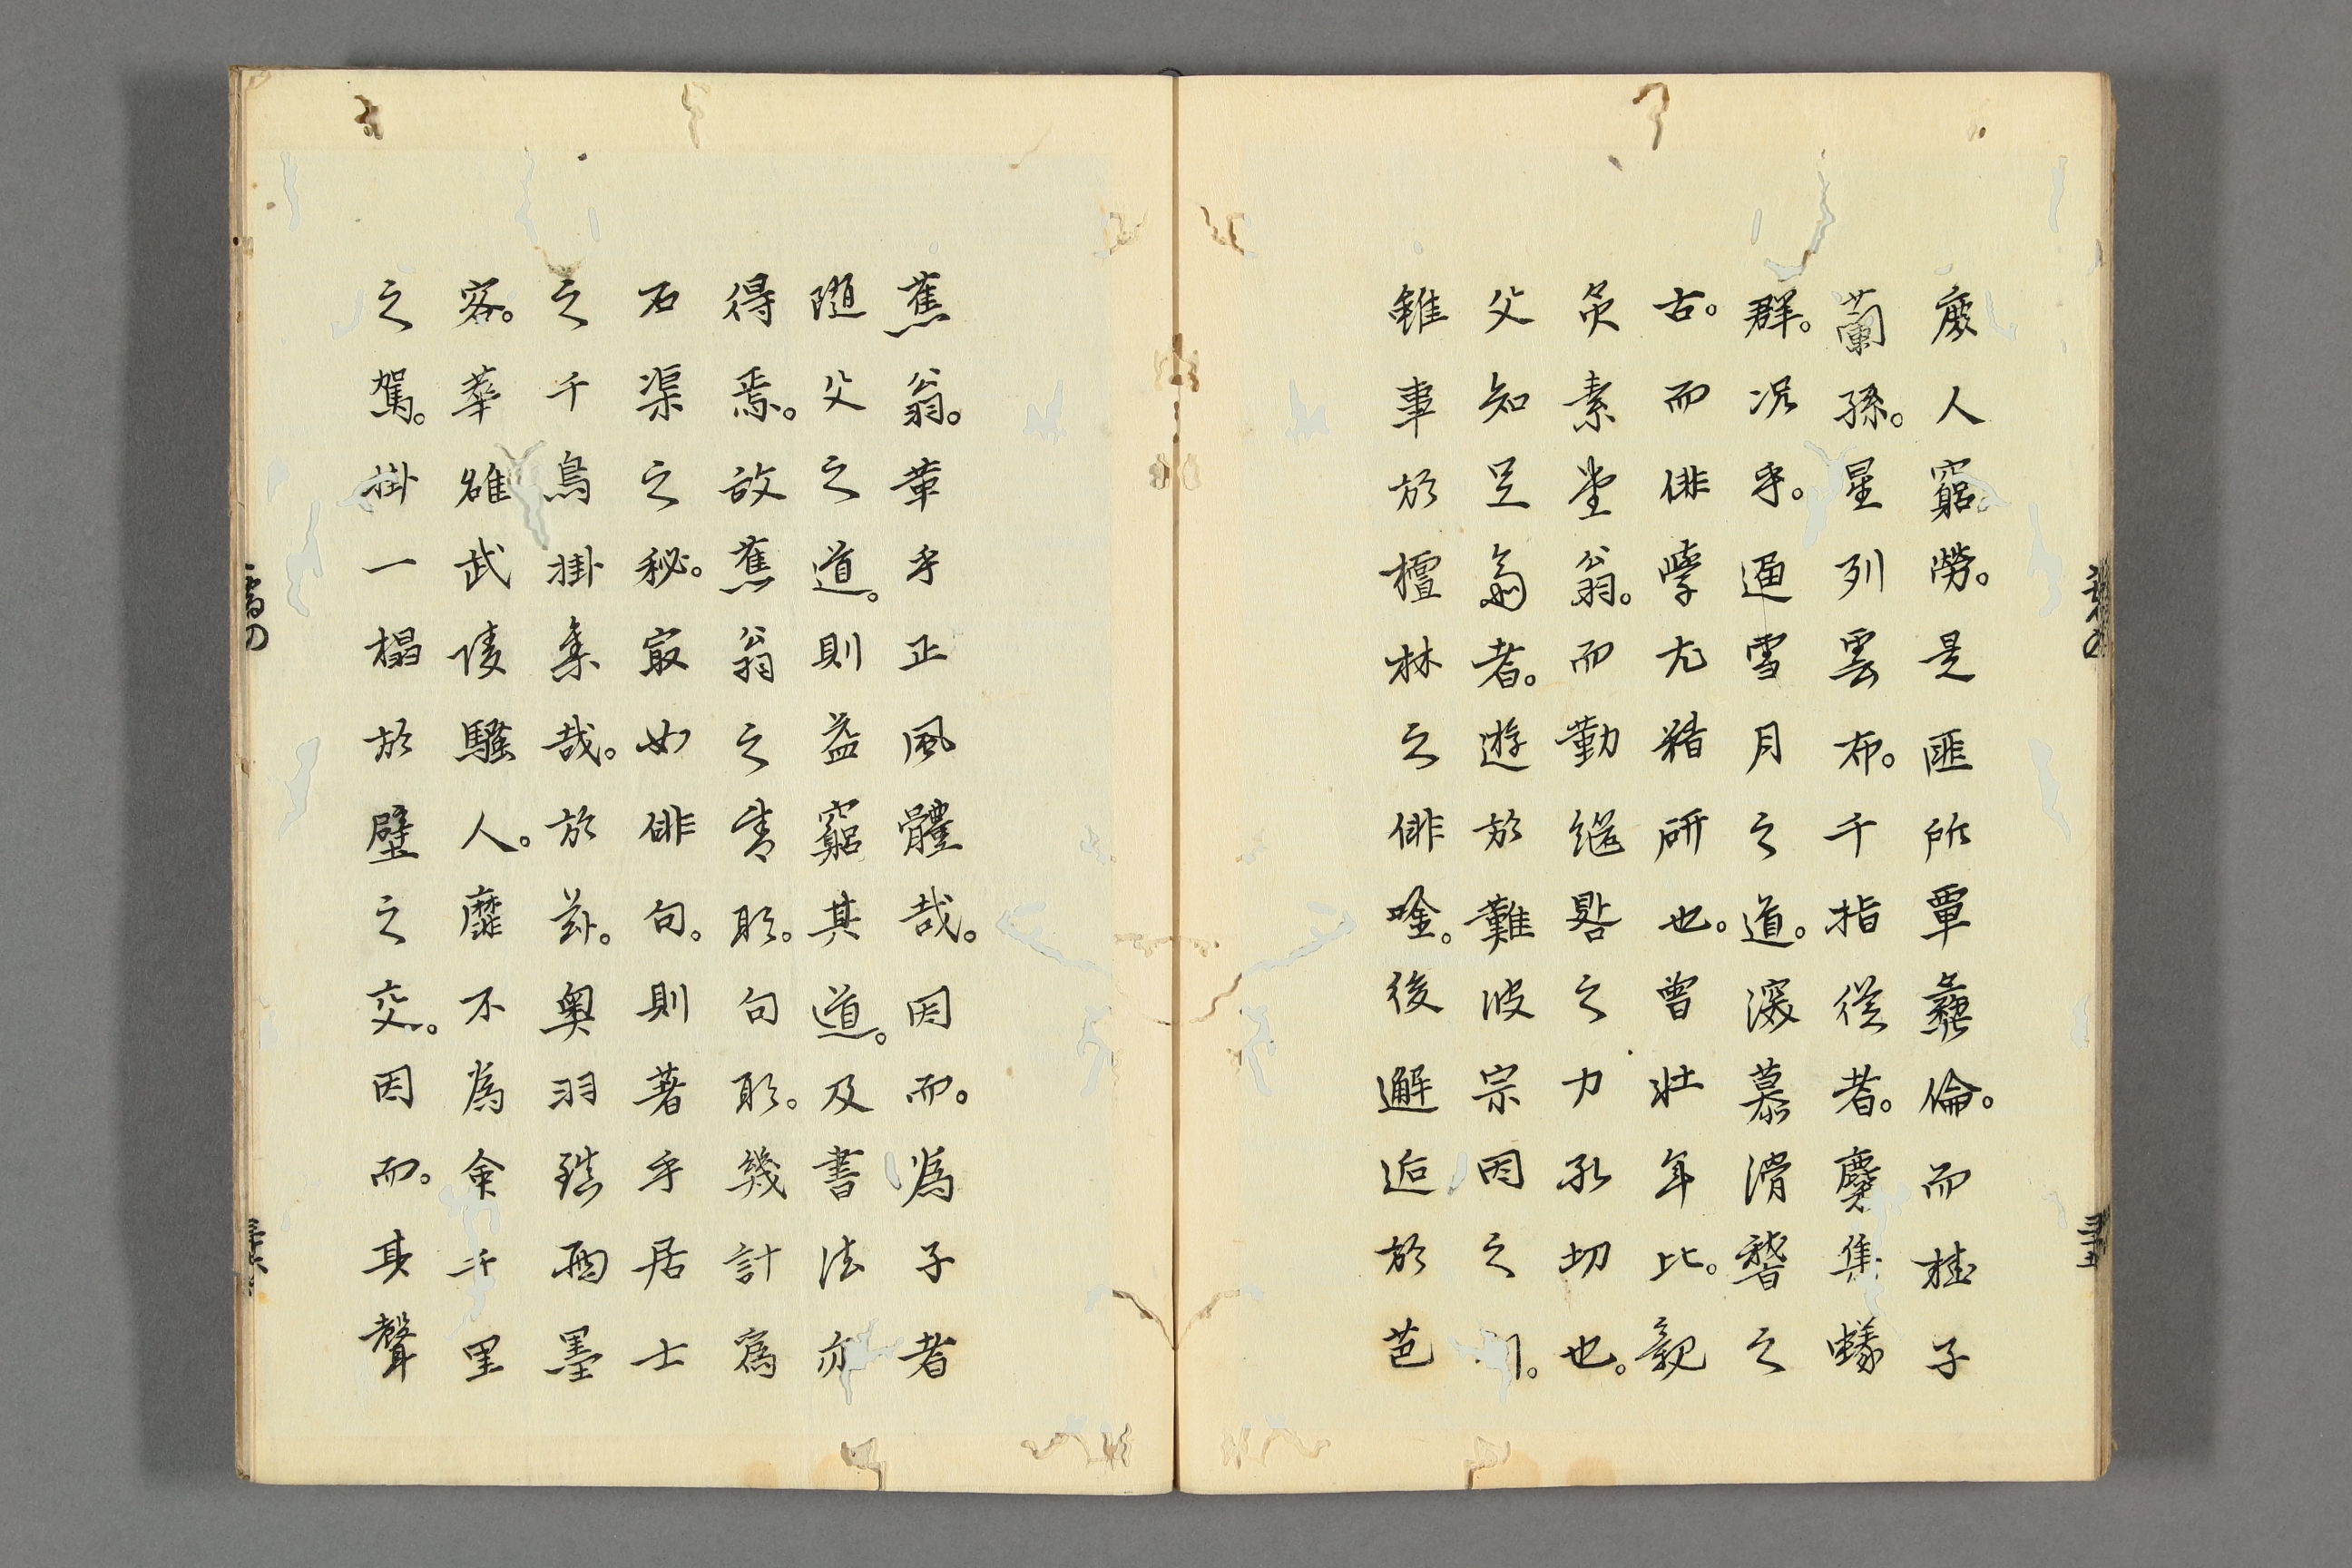 廢人窮勞。是匪所覃彝倫。而桂子
蘭孫。星列雲布。千指従者。麇集蟻
群。况乎。通雪月之道。深慕滑稽之
古。而俳學尤精研也。曽壮年比。親
炙素堂翁。而勤継畧之力孔切也。
父知足翁者。遊於難波宗因之門。
雖事於檀林之俳唫。後邂逅於芭
蕉翁。章乎正風體哉。因而。為子者
隨父之道。則益窮其道。及書法亦
得焉。故蕉翁之書耶。句耶。幾計為
石渠之秘。㝡如俳句。則著乎居士
之千鳥掛集哉。於茲。奥羽鎮西墨
客。華雒武陵騒人。靡不為命千里
之駕。掛一榻於壁之交。因而。其聲
三十五
三十六